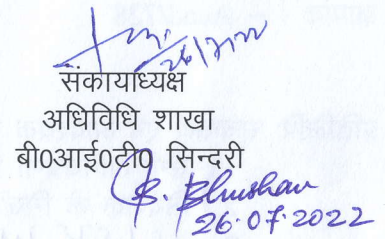 26/7/22
संकायाध्यक्ष
अधिविधि शाखा
बी०आई०टी० सिन्दरी
B. Bhushan
26.07.2022